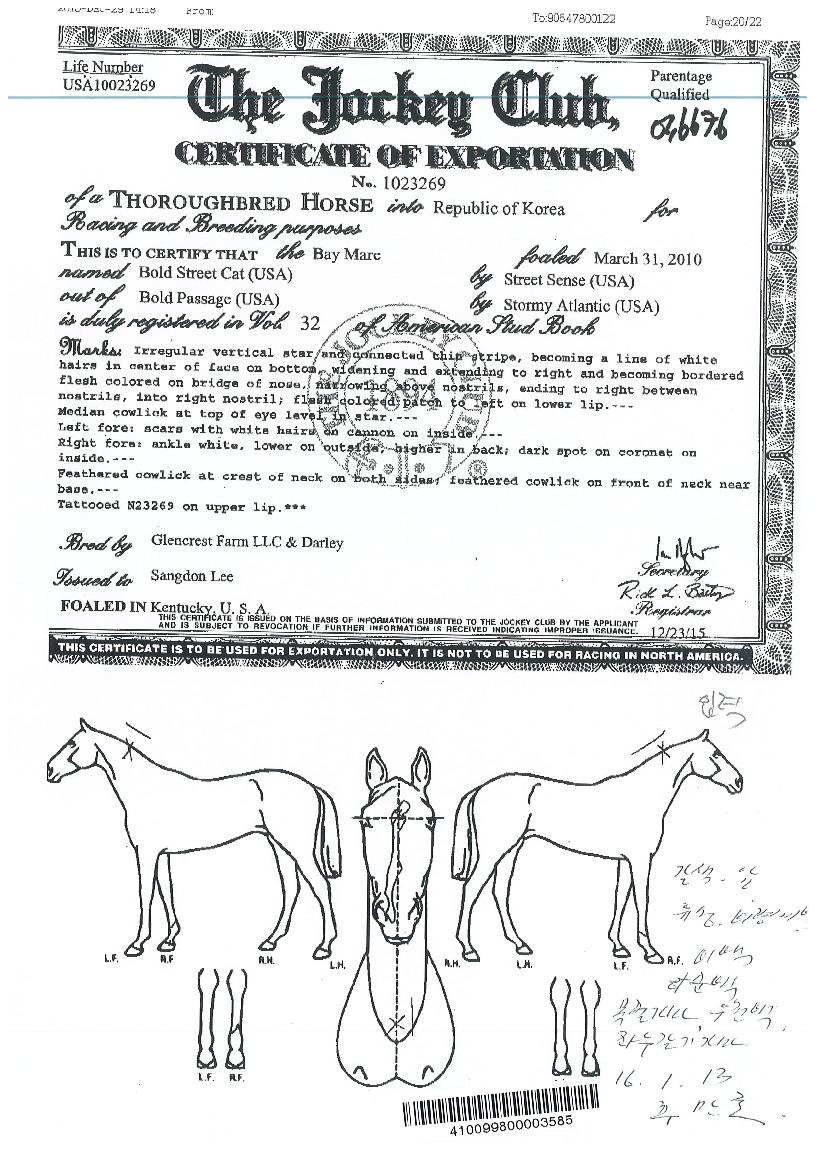 From:
To:90647800122
Page:20/22
Life Number
USA10023269
The Jockey Club,
Parentage
Qualified
046676
CERTIFICATE OF EXPORTATION
No. 1023269
of a THOROUGHBRED HORSE into Republic of Korea for
Racing and Breeding purposes
THIS IS TO CERTIFY THAT the Bay Mare foaled March 31, 2010
named Bold Street Cat (USA) by Street Sense (USA)
out of Bold Passage (USA) by Stormy Atlantic (USA)
is duly registered in Vol. 32 of American Stud Book
Marks: Irregular vertical star and connected thin stripe, becoming a line of white
hairs in center of face on bottom, widening and extending to right and becoming bordered
flesh colored on bridge of nose, narrowing above nostrils, ending to right between
nostrils, into right nostril; flesh colored patch to left on lower lip.---
Median cowlick at top of eye level in star.---
Left fore: scars with white hairs on cannon on inside.---
Right fore: ankle white, lower on outside, higher in back; dark spot on coronet on
inside.---
Feathered cowlick at crest of neck on both sides; feathered cowlick on front of neck near
base.---
Tattooed N23269 on upper lip.***
THE JOCKEY CLUB
1894
Bred by Glencrest Farm LLC & Darley
Issued to Sangdon Lee
Secretary
Rick L. Bailey
Registrar
FOALED IN Kentucky, U. S. A.
THIS CERTIFICATE IS ISSUED ON THE BASIS OF INFORMATION SUBMITTED TO THE JOCKEY CLUB BY THE APPLICANT
AND IS SUBJECT TO REVOCATION IF FURTHER INFORMATION IS RECEIVED INDICATING IMPROPER ISSUANCE.
12/23/15
THIS CERTIFICATE IS TO BE USED FOR EXPORTATION ONLY. IT IS NOT TO BE USED FOR RACING IN NORTH AMERICA.
L.F. R.F R.H. L.H.
R.H. L.H. L.F. R.F.
L.F. R.F.
비백
16. 1. 13
410099800003585